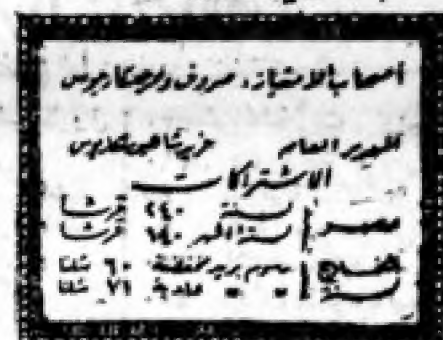 أصحاب الامتياز: صروف ونمر ومكاريوس
المدير العام عزيز شاهين مكاريوس
الاشتراكات
مصر سنة ٢٤٠ قرشا
ستة أشهر ١٤٠ قرشا
الخارج رسوم بريد مخفضة ٦٠ شلنا
سنة " " عادية ٧٦ شلنا